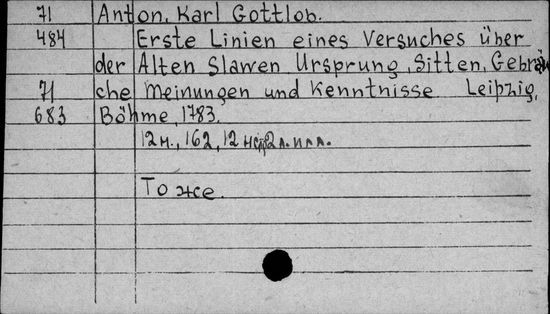 71 Anton, Karl Gottlob.
484 Erste Linien eines Versuches über
der Alten Slawen Ursprung, Sitten, Gebräu
71 che Meinungen und Kenntnisse Leipzig,
683 Böhme, 1783.
12 н., 162, 12 л. илл.
То же.